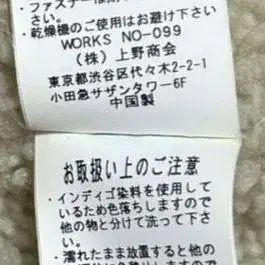 ・ファスナーは
さい。
・乾燥機のご使用はお避け下さい
WORKS NO-099
(株)上野商会
東京都渋谷区代々木2-2-1
小田急サザンタワー6F
中国製
お取扱い上のご注意
・インディゴ染料を使用して
いるため色落ちしますので
他の物と分けて洗って下さ
い。
・濡れたまま放置すると他の